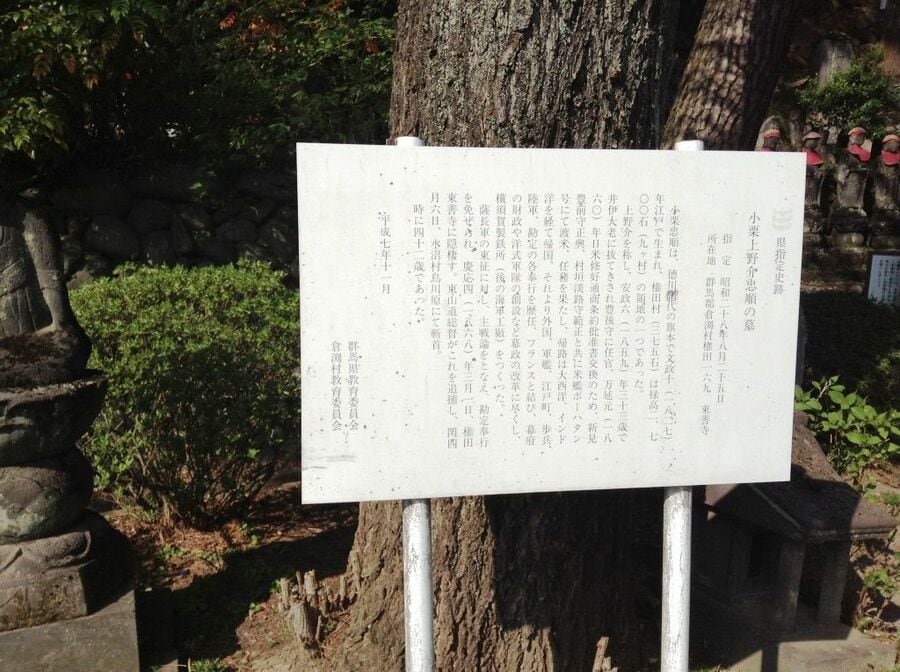 県指定史跡
小栗上野介忠順の墓
指定 昭和二十八年八月二十五日
所在地 群馬郡倉渕村権田一六九 東善寺
小栗忠順は、徳川譜代の旗本で文政十（一八二七）
年江戸で生まれ、権田村（三七五石）は禄高二、七
〇〇石（九ヶ村）の領地の一つであった。
上野介を称し、安政六（一八五九）年三十三歳で
井伊大老に抜てきされ豊後守に任官、万延元（一八
六〇）年日米修好通商条約批准書交換のため、新見
豊前守正興、村垣淡路守範正と共に米艦ポータン
号にて渡米、任務を果たし、帰路は大西洋、インド
洋を経て帰国、それより外国、軍艦、江戸町、歩兵、
陸軍、勘定の各奉行を歴任、フランスと結び、幕府
の財政や洋式軍隊の創設など幕政の改革に尽くし、
横須賀製鉄所（後の海軍工廠）をつくった。
薩長軍の東征に対し、主戦論をとなえ、勘定奉行
を免ぜられ、慶応四（一八六八）年三月一日、権田
東善寺に隠棲す。東山道総督がこれを追捕し、閏四
月六日、水沼村烏川原にて斬首。
時に四十二歳であった。
平成七年十一月
群馬県教育委員会
倉渕村教育委員会